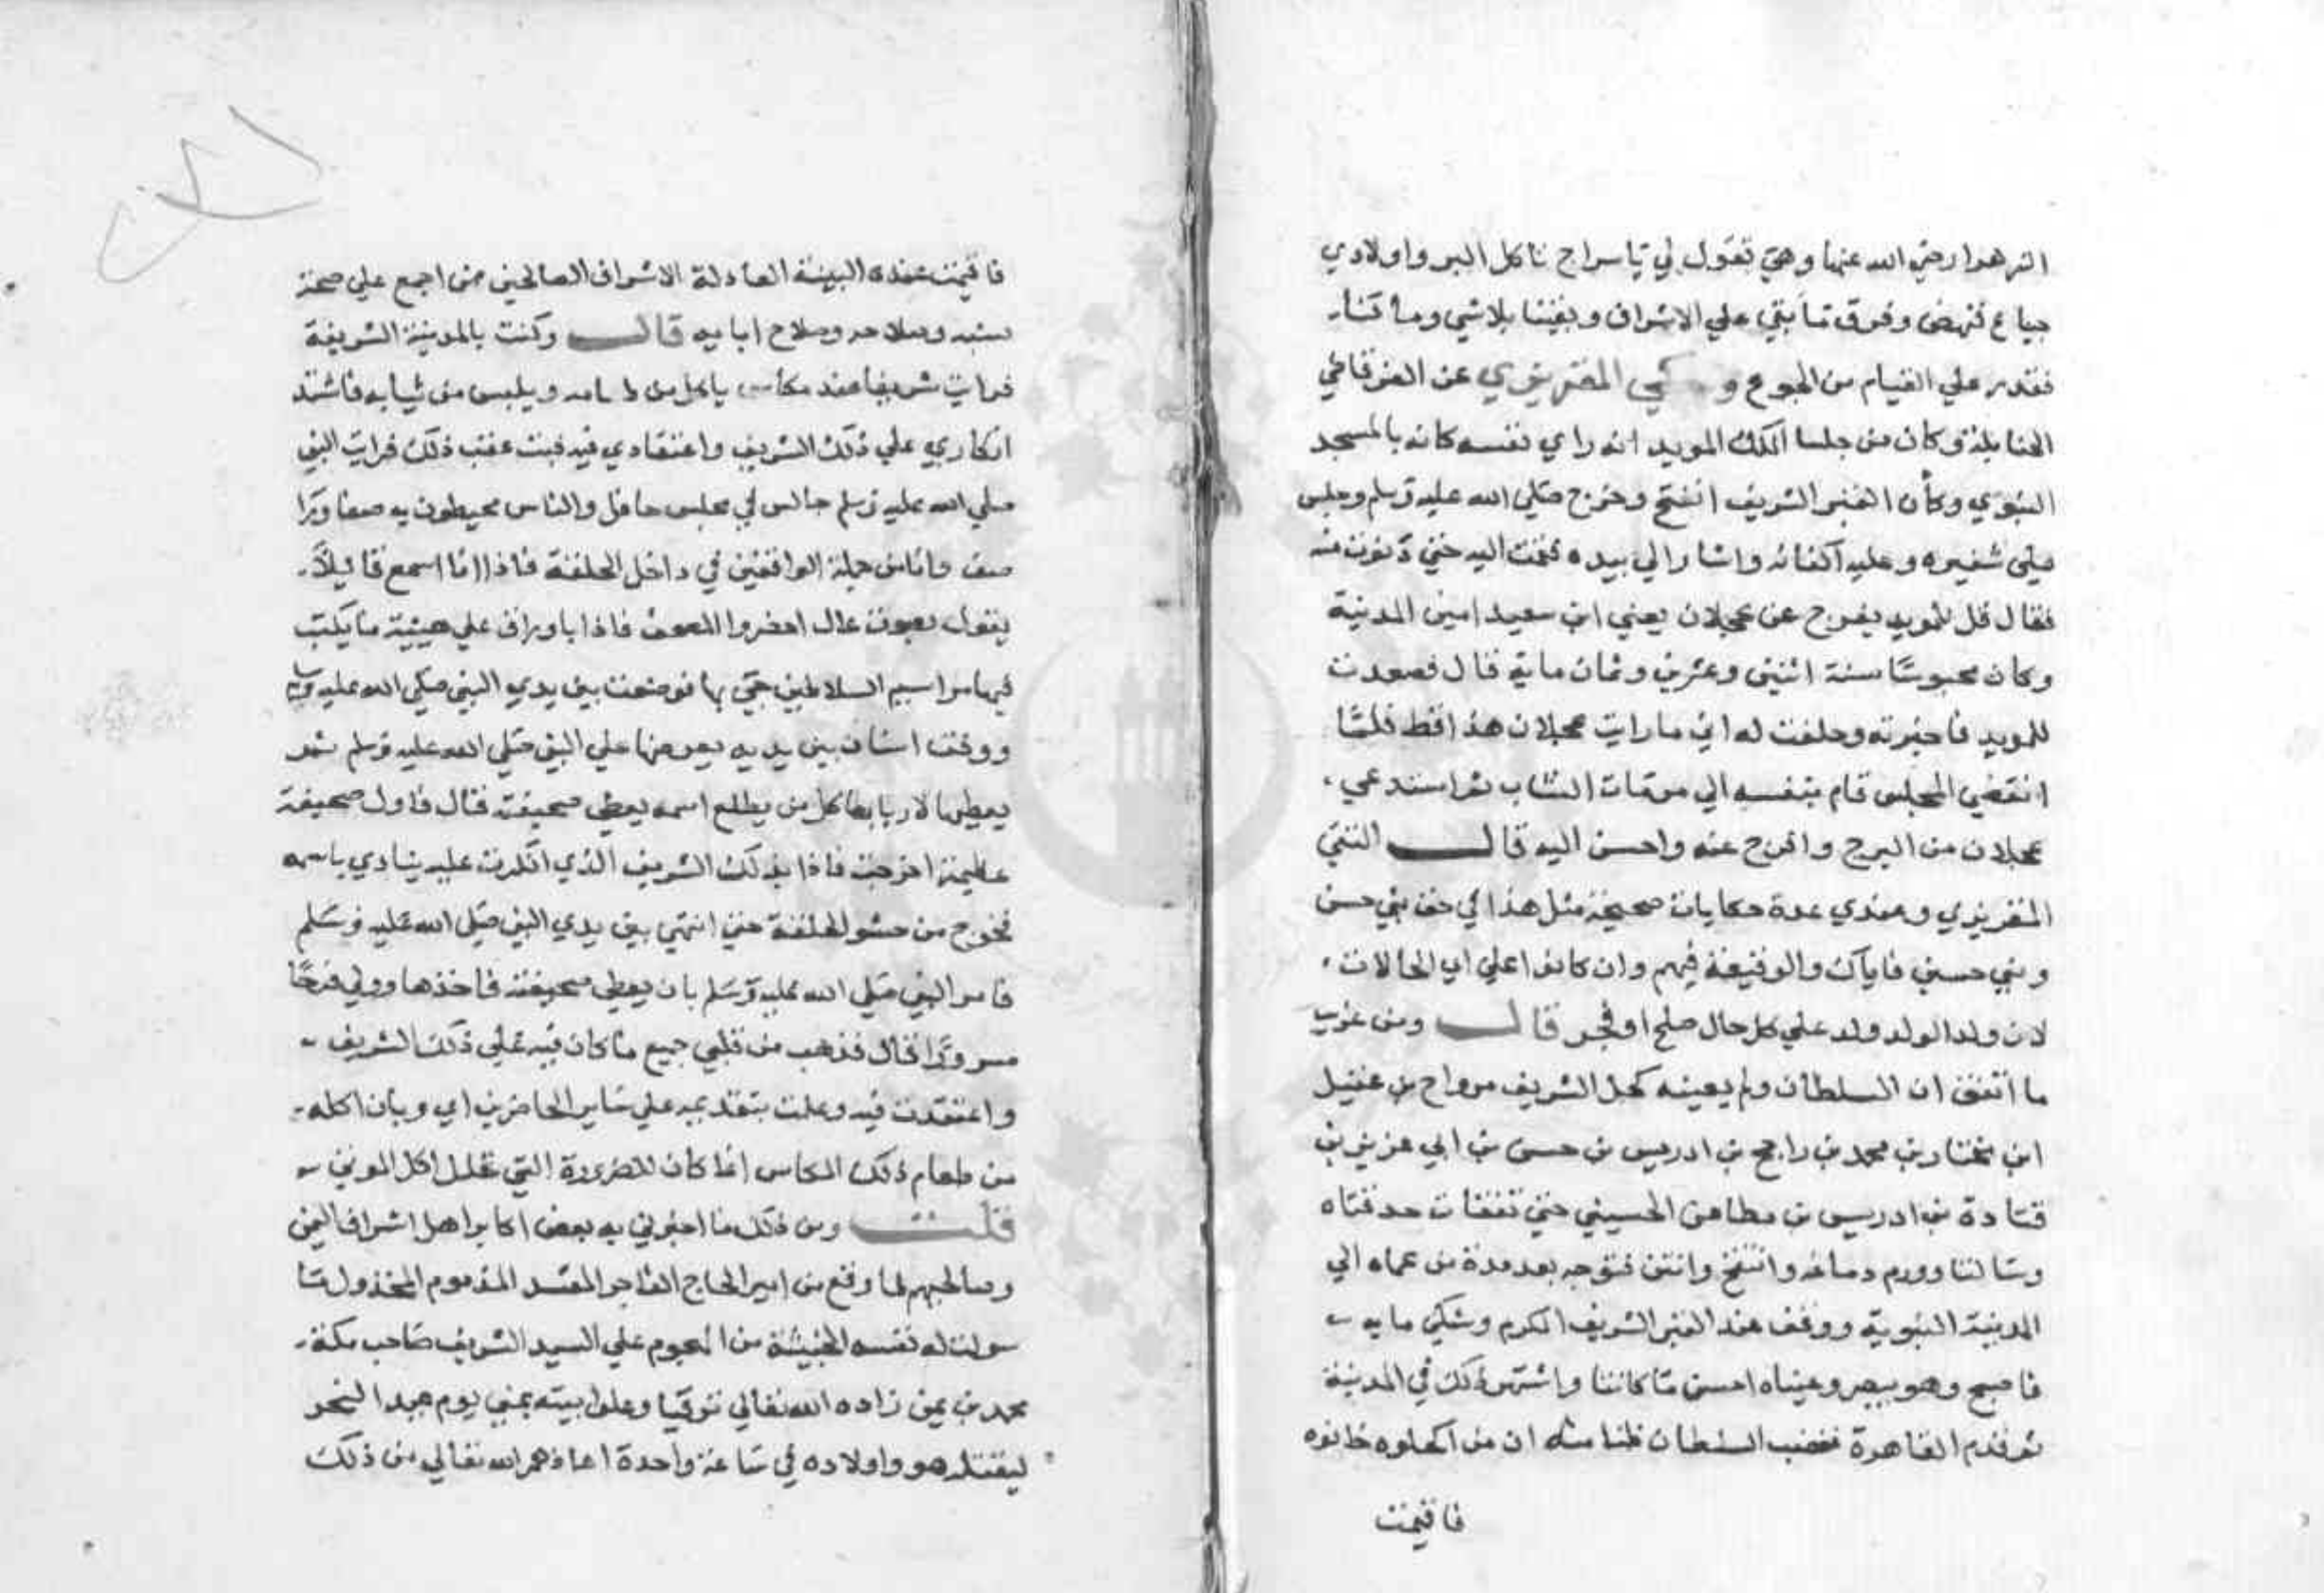 الزهرا رضي الله عنها وهي تقول لي يا سراج تاكل البر واولادي
جياع فنهض وفرق ما بقي علي الاشراف وبقينا بلا شي وما كنا
نقدر علي القيام من الجوع وحكي المقريزي عن العز قاضي
الحنابلة وكان من جلسا الملك المويد انه راي نفسه كانه بالمسجد
النبوي وكأن القبر الشريف انفتح وخرج صلي الله عليه وسلم وجلس
علي شفيره وعليه اكفانه واشار الي بيده فقمت اليه حتي دنوت منه
فقال قل للمويد يفرج عن عجلان يعني ابن سعيد امير المدينة
وكان محبوسًا سنة اثنتين وعشرين وثمان ماية قال فصعدت
للمويد فاخبرته وحلفت له اني ما رايت عجلان هذا قط فلمّا
انقضي المجلس قام بنفسه الي مرمات النشاب ثم استدعي
عجلان من البرج وافرج عنه واحسن اليه قال التقي
المقريزي وعندي عدة حكايات صحيحة مثل هذا في حق بني حسن
وبني حسين فاياك والوقيعة فيهم وان كانوا علي اي الحالات
لان ولد الولد ولد علي كل حال صلح او فجر قال ومن غريب
ما اتفق ان السلطان ولم يعينه كحل الشريف مرواح بن عقيل
ابن مختار بن محمد بن راجح بن ادريس بن حسن بن ابي عزيز بن
قتادة بن ادريس بن مطاعن الحسيني حتي تفقات حدقتاه
وسالتا وورم دماغه وانتفخ وانتن فتوجه بعد مدة من عماه الي
المدينة النبوية ووقف عند القبر الشريف المكرم وشكي ما به
فاصبح وهو يبصر وعيناه احسن ما كانتا واشتهر ذلك في المدينة
ثم قدم القاهرة فغضب السلطان ظنا منه ان من اكحلوه خانوه
فاقيمت
فاقيمت عنده البينة العادلة الاشراف الصالحين ممن اجمع علي صحة
نسبه وصلاحه وصلاح ابايه قال وكنت بالمدينة الشريفة
فرايت شريفا عند مكاس ياكل من طعامه ويلبس من ثيابه فاشتد
انكاري علي ذلك الشريف واعتقادي فيه فبت عقب ذلك فرايت النبي
صلي الله عليه وسلم جالس في مجلس حافل والناس محيطون به صفا ورا
صف وانا من جملة الواقفين في داخل الحلقة فاذا انا اسمع قايلاً
يقول بصوت عال احضروا الصحف فاذا باوراق علي هيئة ما يكتب
فيها مراسيم السلاطين جيّ بها فوضعت بين يدي النبي صلي الله عليه وسلم
ووقف انسان بين يديه يعرضها علي النبي صلي الله عليه وسلم ثم
يعطيها لاربابها كل من يطلع اسمه يعطي صحيفته قال فاول صحيفة
عظيمة اخرجت فاذا بذلك الشريف الذي انكرت عليه ينادي باسمه
فخرج من حشو الحلقة حتي انتهي بين يدي النبي صلي الله عليه وسلم
فامر النبي صلي الله عليه وسلم بان يعطي صحيفته فاخذها وولي فرحًا
مسرورًا قال فذهب من قلبي جميع ما كان فيه علي ذلك الشريف
واعتقدت فيه وعلمت بتقديمه علي ساير الحاضرين اي وبان اكله
من طعام ذلك المكاس انما كان للضرورة التي تحلل اكل
قلت ومن ذلك ما اخبرني به بعض اكابر اهل اشراف اليمن
وصالحيهم لما وقع من امير الحاج الفاجر المفسد المذموم المخذول ما
سولت له نفسه الخبيثة من الهجوم علي السيد الشريف صاحب مكة
محمد بن زاده الله تعالي ترقيا وعلو بيته بمني يوم عيد النحر
ليقتله هو واولاده في ساعة واحدة اعاذهم الله تعالي من ذلك